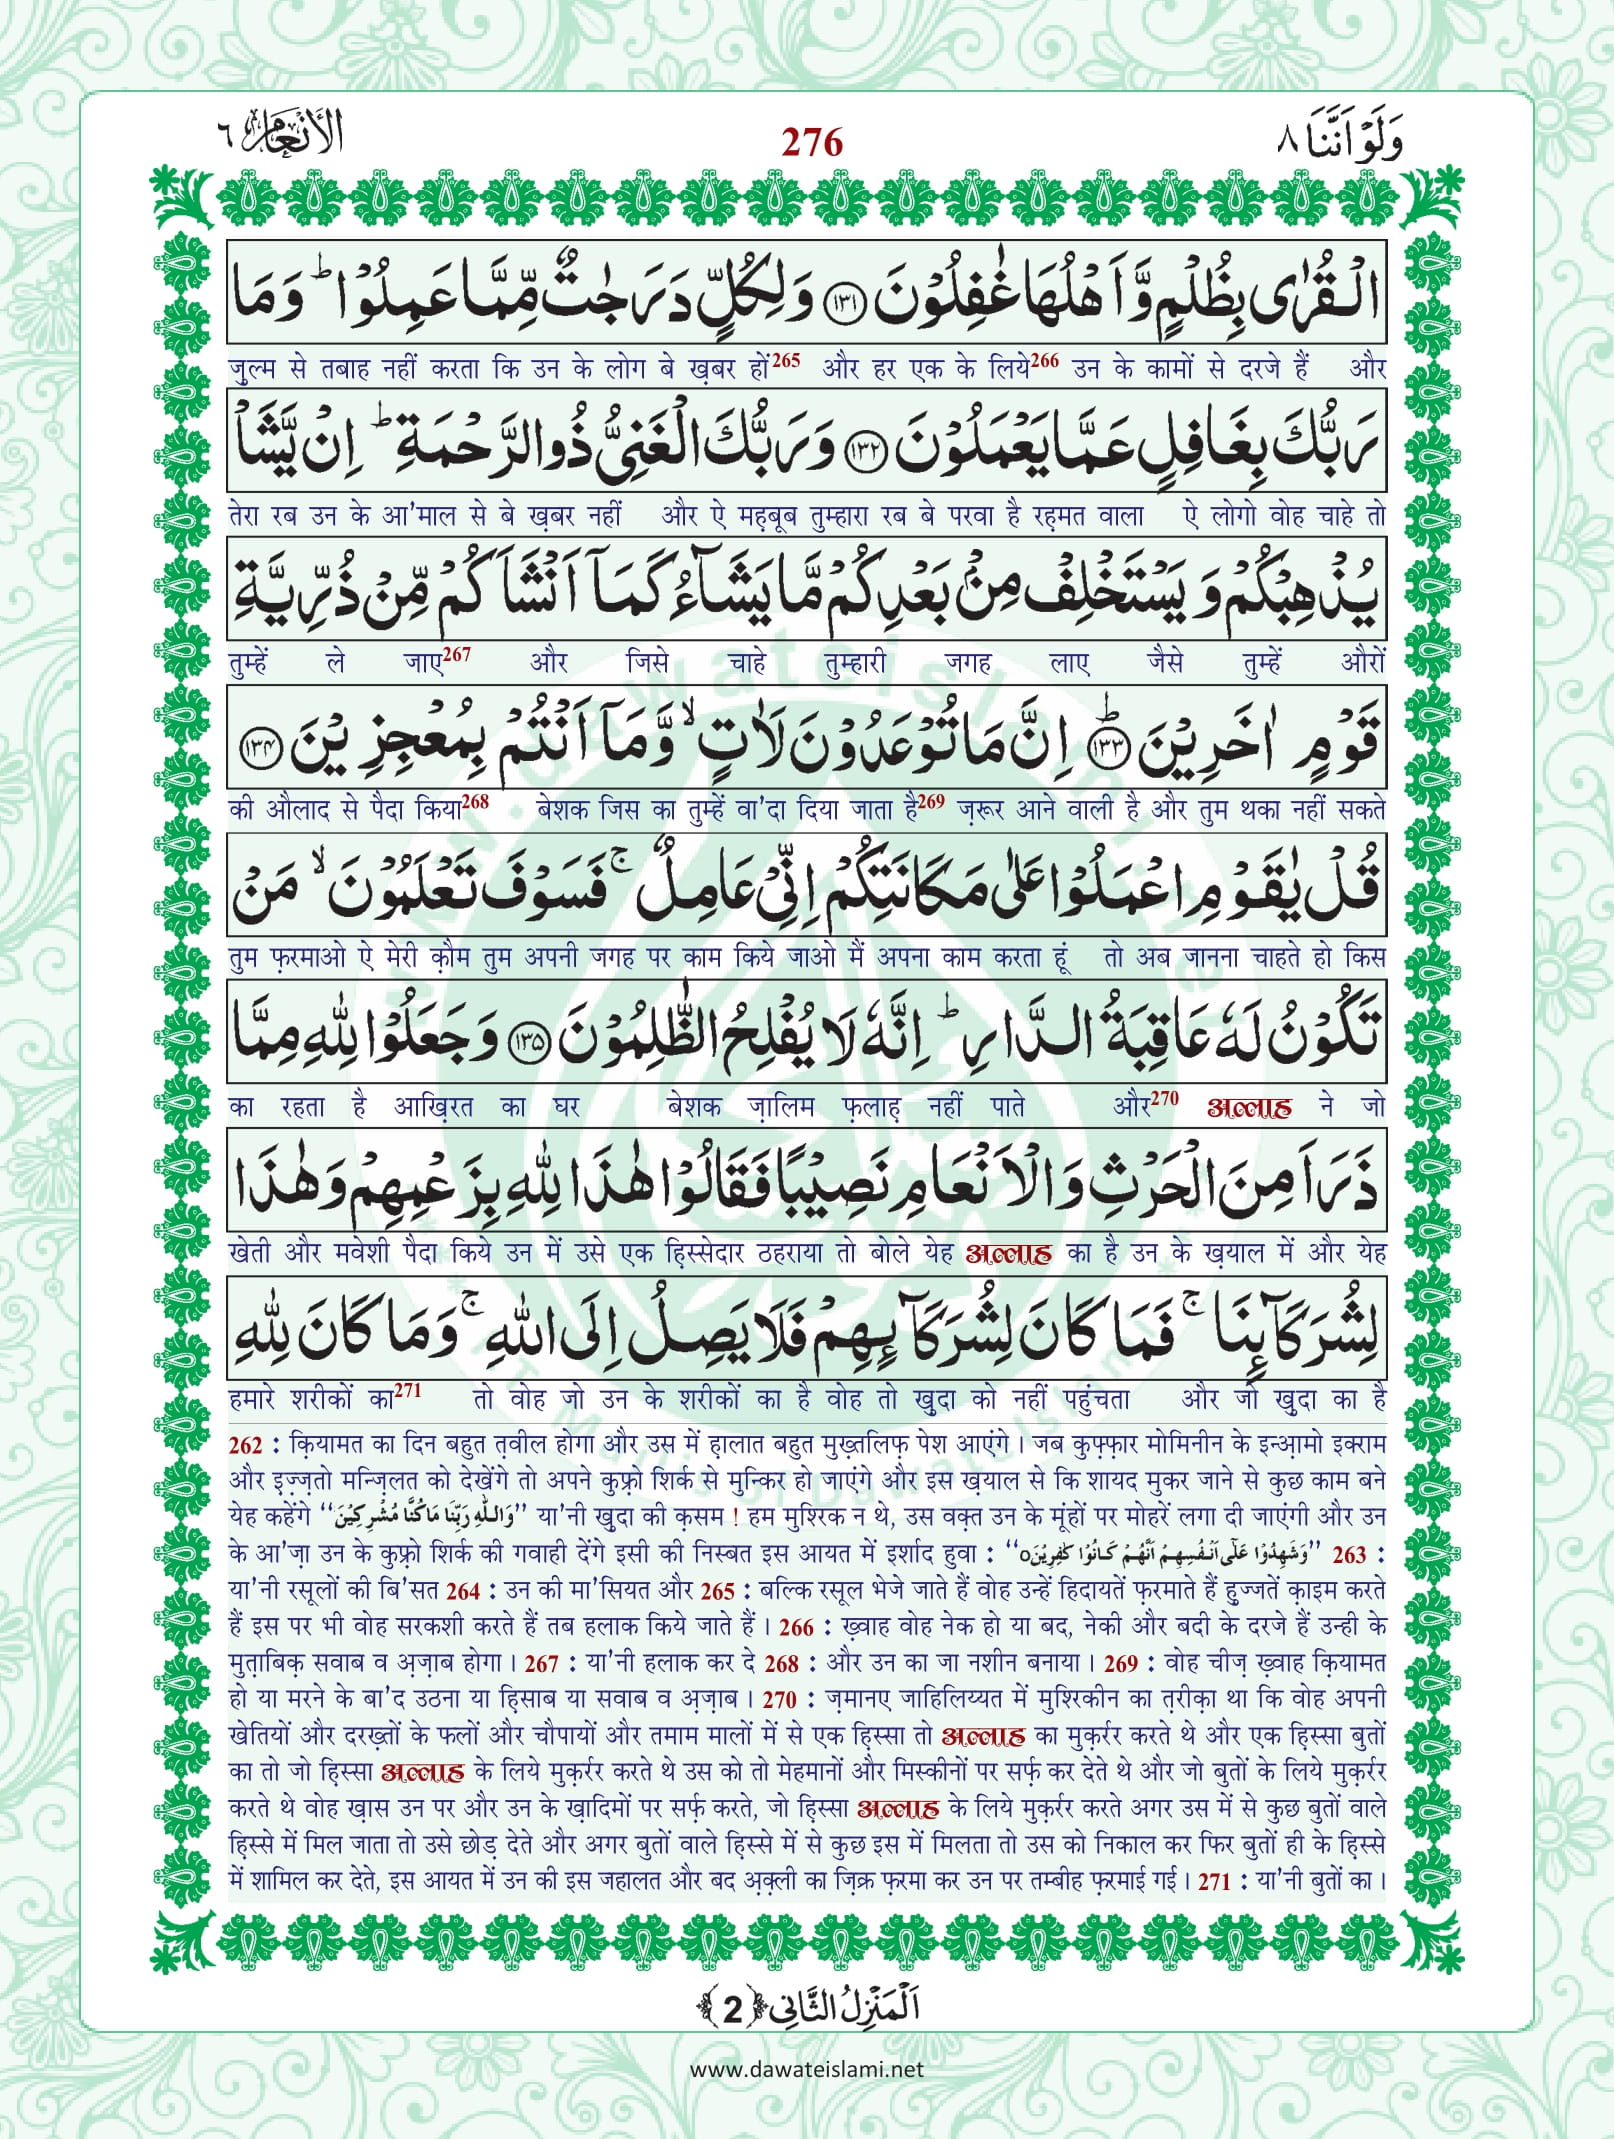 وَلَوْ اَنَّنَا ٨
276
الْاَنْعَام ٦
الْقُرٰى بِظُلْمٍ وَّ اَهْلُهَا غٰفِلُوْنَ ﴿۱۳۱﴾ وَ لِكُلٍّ دَرَجٰتٌ مِّمَّا عَمِلُوْا ؕ وَ مَا
ज़ुल्म से तबाह नहीं करता कि उन के लोग बे ख़बर हों265 और हर एक के लिये266 उन के कामों से दरजे हैं और
رَبُّكَ بِغَافِلٍ عَمَّا يَعْمَلُوْنَ ﴿۱۳۲﴾ وَ رَبُّكَ الْغَنِىُّ ذُو الرَّحْمَةِ ؕ اِنْ يَّشَاْ
तेरा रब उन के आ'माल से बे ख़बर नहीं और ऐ मह़बूब तुम्हारा रब बे परवा है रह़मत वाला ऐ लोगो वोह चाहे तो
يُذْهِبْكُمْ وَ يَسْتَخْلِفْ مِنْۢ بَعْدِكُمْ مَّا يَشَآءُ كَمَاۤ اَنْشَاَكُمْ مِّنْ ذُرِّيَّةِ
तुम्हें ले जाए267 और जिसे चाहे तुम्हारी जगह लाए जैसे तुम्हें औरों
قَوْمٍ اٰخَرِيْنَ ﴿۱۳۳﴾ؕ اِنَّ مَا تُوْعَدُوْنَ لَاٰتٍ ۙ وَّ مَاۤ اَنْتُمْ بِمُعْجِزِيْنَ ﴿۱۳۴﴾
की औलाद से पैदा किया268 बेशक जिस का तुम्हें वा'दा दिया जाता है269 ज़रूर आने वाली है और तुम थका नहीं सकते
قُلْ يٰقَوْمِ اعْمَلُوْا عَلٰى مَكَانَتِكُمْ اِنِّىْ عَامِلٌ ۚ فَسَوْفَ تَعْلَمُوْنَ ۙ مَنْ
तुम फ़रमाओ ऐ मेरी क़ौम तुम अपनी जगह पर काम किये जाओ मैं अपना काम करता हूं तो अब जानना चाहते हो किस
تَكُوْنُ لَهٗ عَاقِبَةُ الدَّارِ ؕ اِنَّهٗ لَا يُفْلِحُ الظّٰلِمُوْنَ ﴿۱۳۵﴾ وَ جَعَلُوْا لِلّٰهِ مِمَّا
का रहता है आख़िरत का घर बेशक ज़ालिम फ़लाह़ नहीं पाते और270 अल्लाह ने जो
ذَرَاَ مِنَ الْحَرْثِ وَ الْاَنْعَامِ نَصِيْبًا فَقَالُوْا هٰذَا لِلّٰهِ بِزَعْمِهِمْ وَ هٰذَا
खेती और मवेशी पैदा किये उन में उसे एक ह़िस्सेदार ठहराया तो बोले येह अल्लाह का है उन के ख़याल में और येह
لِشُرَكَآىِٕنَا ۚ فَمَا كَانَ لِشُرَكَآىِٕهِمْ فَلَا يَصِلُ اِلَى اللّٰهِ ۚ وَ مَا كَانَ لِلّٰهِ
हमारे शरीकों का271 तो वोह जो उन के शरीकों का है वोह तो ख़ुदा को नहीं पहुंचता और जो ख़ुदा का है
262 : क़ियामत का दिन बहुत त़वील होगा और उस में ह़ालात बहुत मुख़्तलिफ़ पेश आएंगे । जब कुफ़्फ़ार मोमिनीन के इन्आ़मो इक्राम
और इ़ज़्ज़तो मन्ज़िलत को देखेंगे तो अपने कुफ़्रो शिर्क से मुन्किर हो जाएंगे और इस ख़याल से कि शायद मुकर जाने से कुछ काम बने
येह कहेंगे ‘‘وَاللّٰهِ رَبِّنَا مَا كُنَّا مُشْرِكِيْنَ’’ या'नी ख़ुदा की क़सम ! हम मुश्रिक न थे, उस वक़्त उन के मूंहों पर मोहरें लगा दी जाएंगी और उन
के आ'ज़ा उन के कुफ़्रो शिर्क की गवाही देंगे इसी की निस्बत इस आयत में इर्शाद हुवा : ‘‘وَشَهِدُوْا عَلٰٓى اَنْفُسِهِمْ اَنَّهُمْ كَانُوْا كٰفِرِيْنَ○’’ 263 :
या'नी रसूलों की बि'सत 264 : उन की मा'सियत और 265 : बल्कि रसूल भेजे जाते हैं वोह उन्हें हिदायतें फ़रमाते हैं हु़ज्जतें क़ाइम करते
हैं इस पर भी वोह सरकशी करते हैं तब हलाक किये जाते हैं । 266 : ख़्वाह वोह नेक हो या बद, नेकी और बदी के दरजे हैं उन्ही के
मुत़ाबिक़ सवाब व अ़ज़ाब होगा । 267 : या'नी हलाक कर दे 268 : और उन का जा नशीन बनाया । 269 : वोह चीज़ ख़्वाह क़ियामत
हो या मरने के बा'द उठना या ह़िसाब या सवाब व अ़ज़ाब । 270 : ज़मानए जाहिलिय्यत में मुश्रिकीन का त़रीक़ा था कि वोह अपनी
खेतियों और दरख़्तों के फलों और चौपायों और तमाम मालों में से एक ह़िस्सा तो अल्लाह का मुक़र्रर करते थे और एक ह़िस्सा बुतों
का तो जो ह़िस्सा अल्लाह के लिये मुक़र्रर करते थे उस को तो मेहमानों और मिस्कीनों पर सर्फ़ कर देते थे और जो बुतों के लिये मुक़र्रर
करते थे वोह ख़ास उन पर और उन के ख़ादिमों पर सर्फ़ करते, जो ह़िस्सा अल्लाह के लिये मुक़र्रर करते अगर उस में से कुछ बुतों वाले
ह़िस्से में मिल जाता तो उसे छोड़ देते और अगर बुतों वाले ह़िस्से में से कुछ इस में मिलता तो उस को निकाल कर फिर बुतों ही के ह़िस्से
में शामिल कर देते, इस आयत में उन की इस जहालत और बद अ़क़्ली का ज़िक्र फ़रमा कर उन पर तम्बीह फ़रमाई गई । 271 : या'नी बुतों का ।
اَلْمَنْزِلُ الثَّانِى ﴿2﴾
www.dawateislami.net